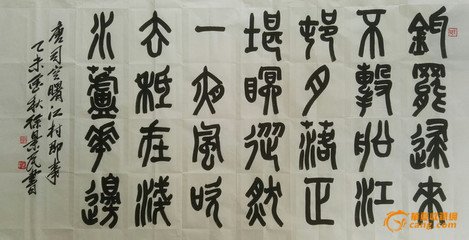 釣罷歸來
不繫船江
邨月落正
堪眠縱然
一夜風吹
去秪在淺
水蘆華邊
唐司空曙江村即事
乙未秋景書
cang.com